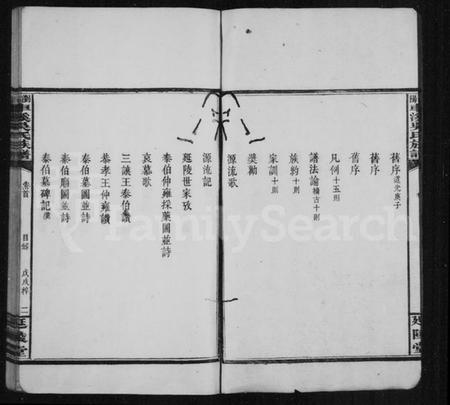 舊序 道光庚子
舊序
舊序
凡例 十五則
譜法論 稽古十則
族約 十則
家訓 十則
獎勸
源流歌
源流記
延陵世家攷
泰伯仲雍採藥圖並詩
哀慕歌
三讓王泰伯讚
恭孝王仲雍讚
泰伯墓圖並詩
泰伯廟圖並詩
泰伯墓碑記
卷首
目錄
戊戌梓
二
延陵堂
延陵堂
FamilySearch